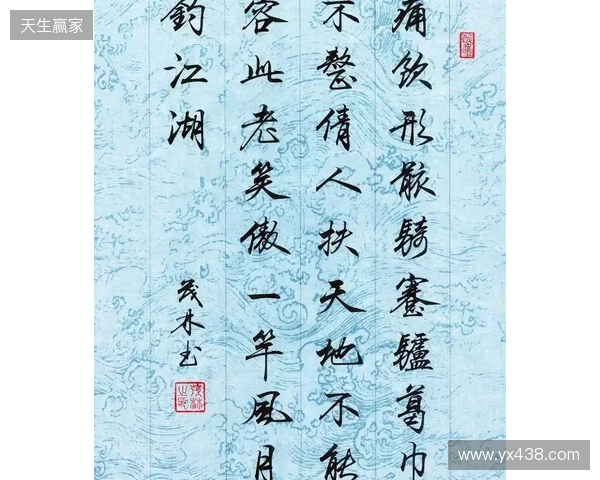 天生赢家
痛飲形骸騎蹇驢葛巾
不整倩人扶天地不能
容此老笑傲一竿風月
釣江湖
茂林书
www.yx438.com